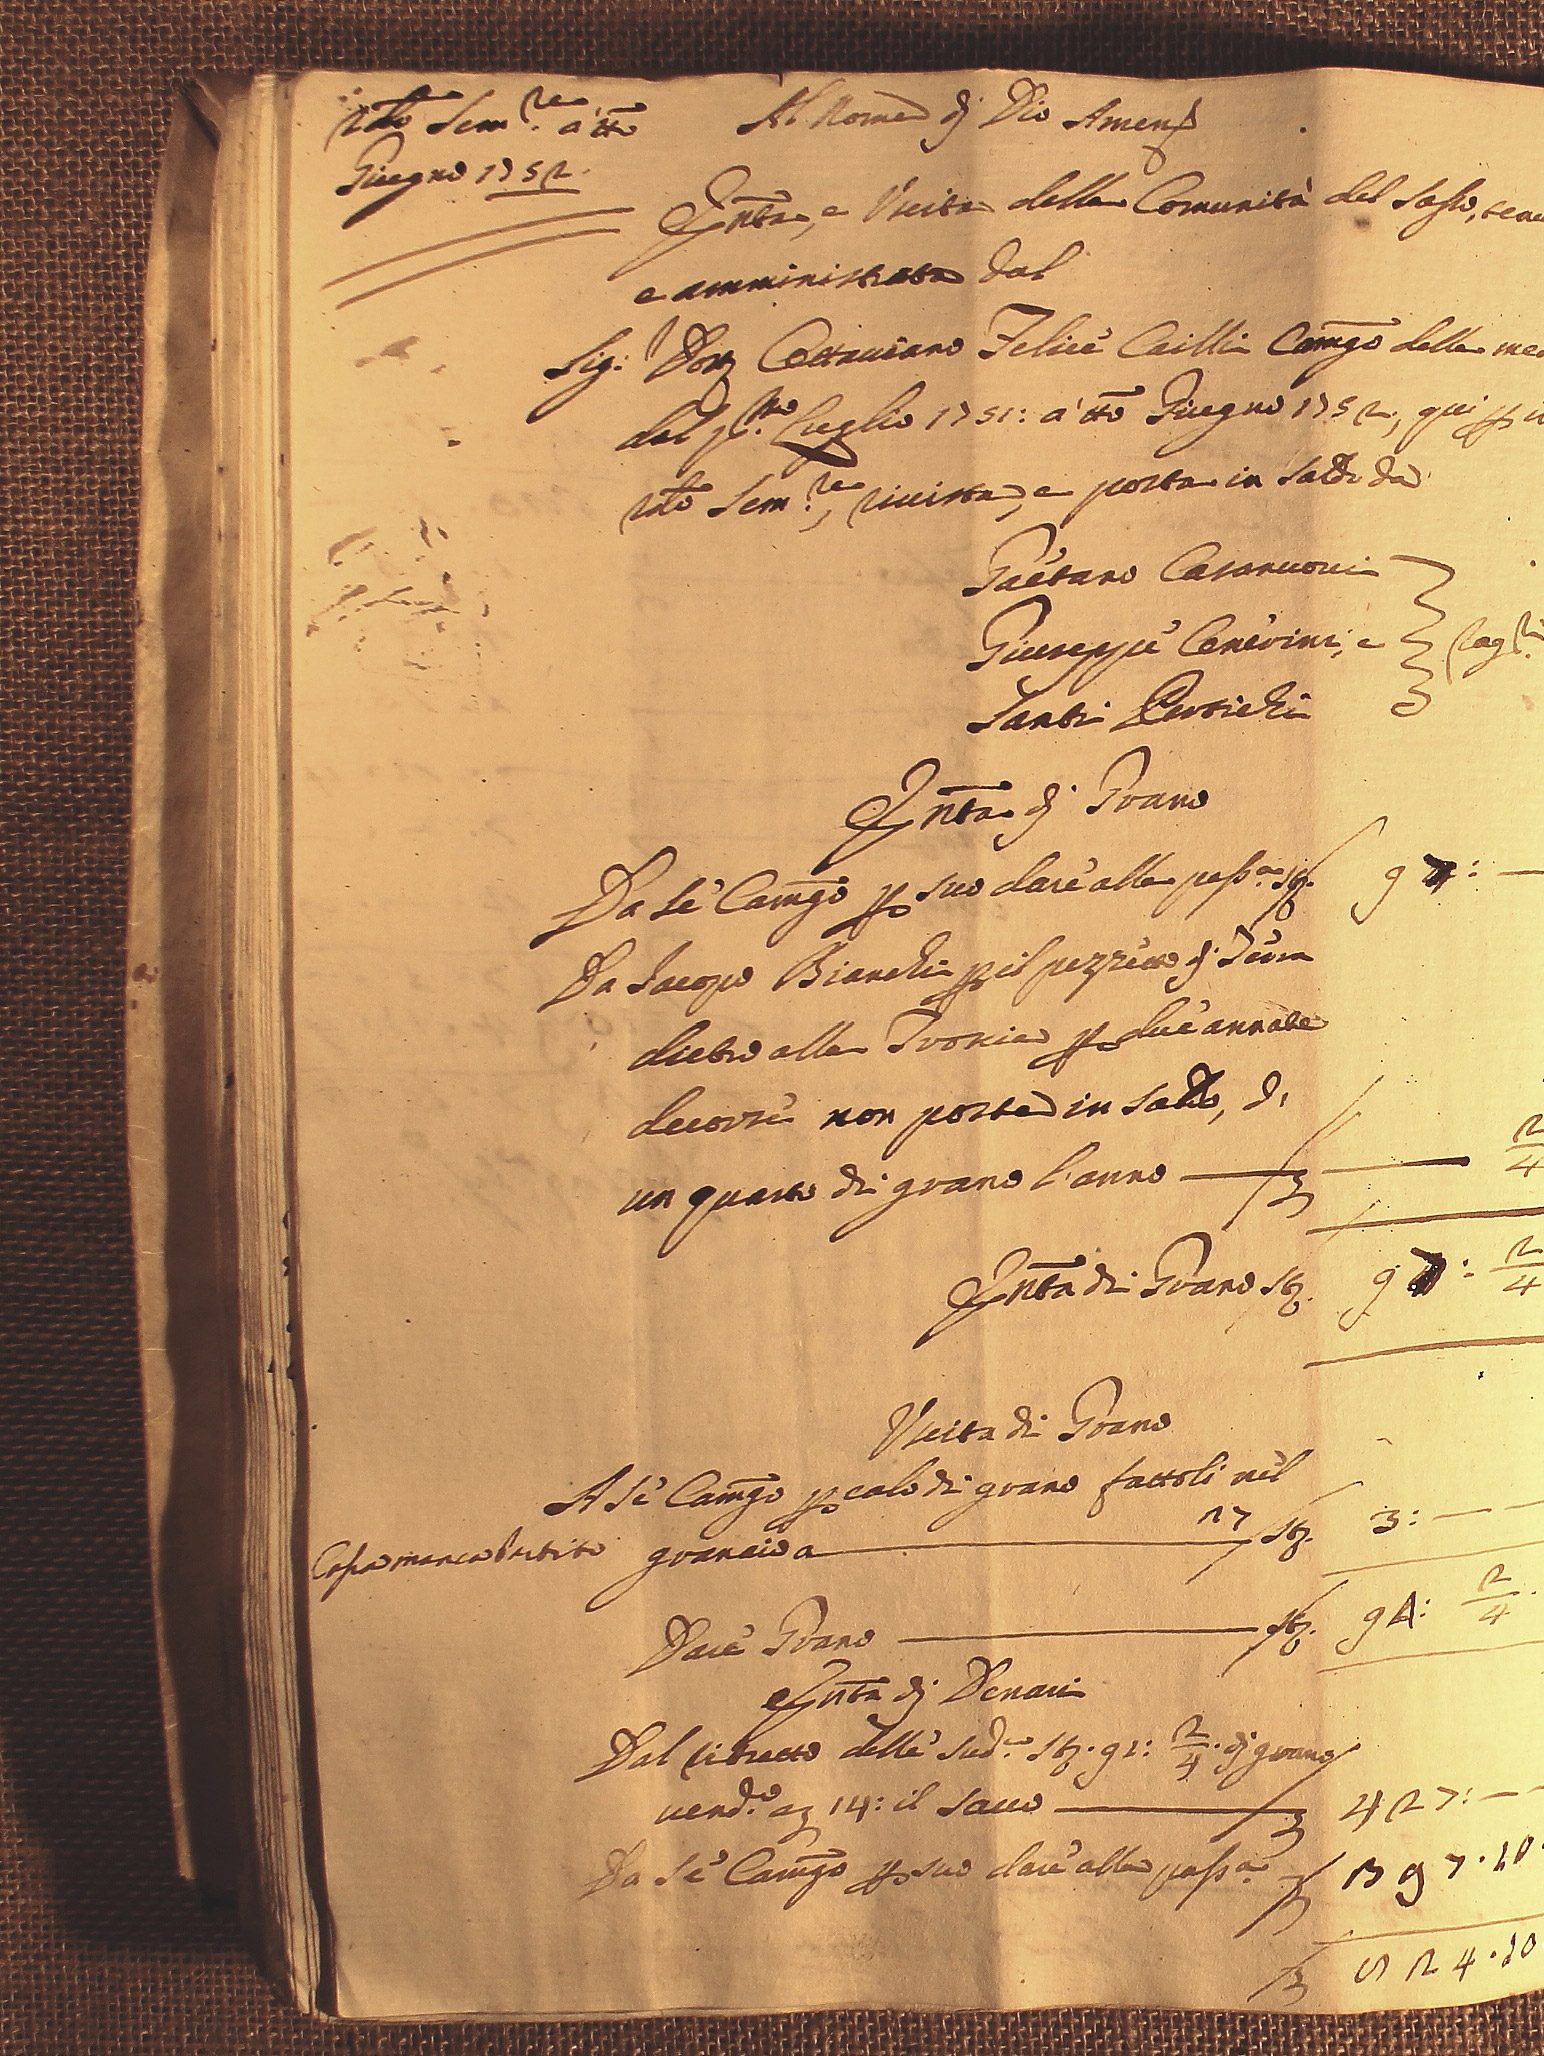 Sem.re a tto
Giugno 1752.
Al Nome di Dio Amen
Entta, e Uscita della Comunità del Sasso,
e amministrata dal
Sig: Dott Ottaviano Felice Cailli Camgo della
dal p.mo Luglio 1751: a tto Giugno 1752, qui
Sem.re, rivista, e posta in saldo da
Gaetano Casanuovi
Giuseppe Cenerini, e
Santi Pertichi
Entta di Grano
Da Sè Camgo p suo dare alla pass.a st.
Da Jacopo Bianchi p il pezzetto di Terra
dietro alla p due annate
decorse non poste in saldo, di
un quarto di grano l'anno 2/4
Entta di Grano st. 2/4
Uscita di Grano
A Sè Camgo p calo di grano fattoli nel
granaio a st. 3: —
Cassa manca Partito
Dare Grano st. 94: 2/4
Entta di Denari
Dal ritratto delle sud.e st. 91: 2/4 di grano
vend.o a 14: il sacco 427: —
Da Sè Camgo p suo dare alla pass.a 97.10